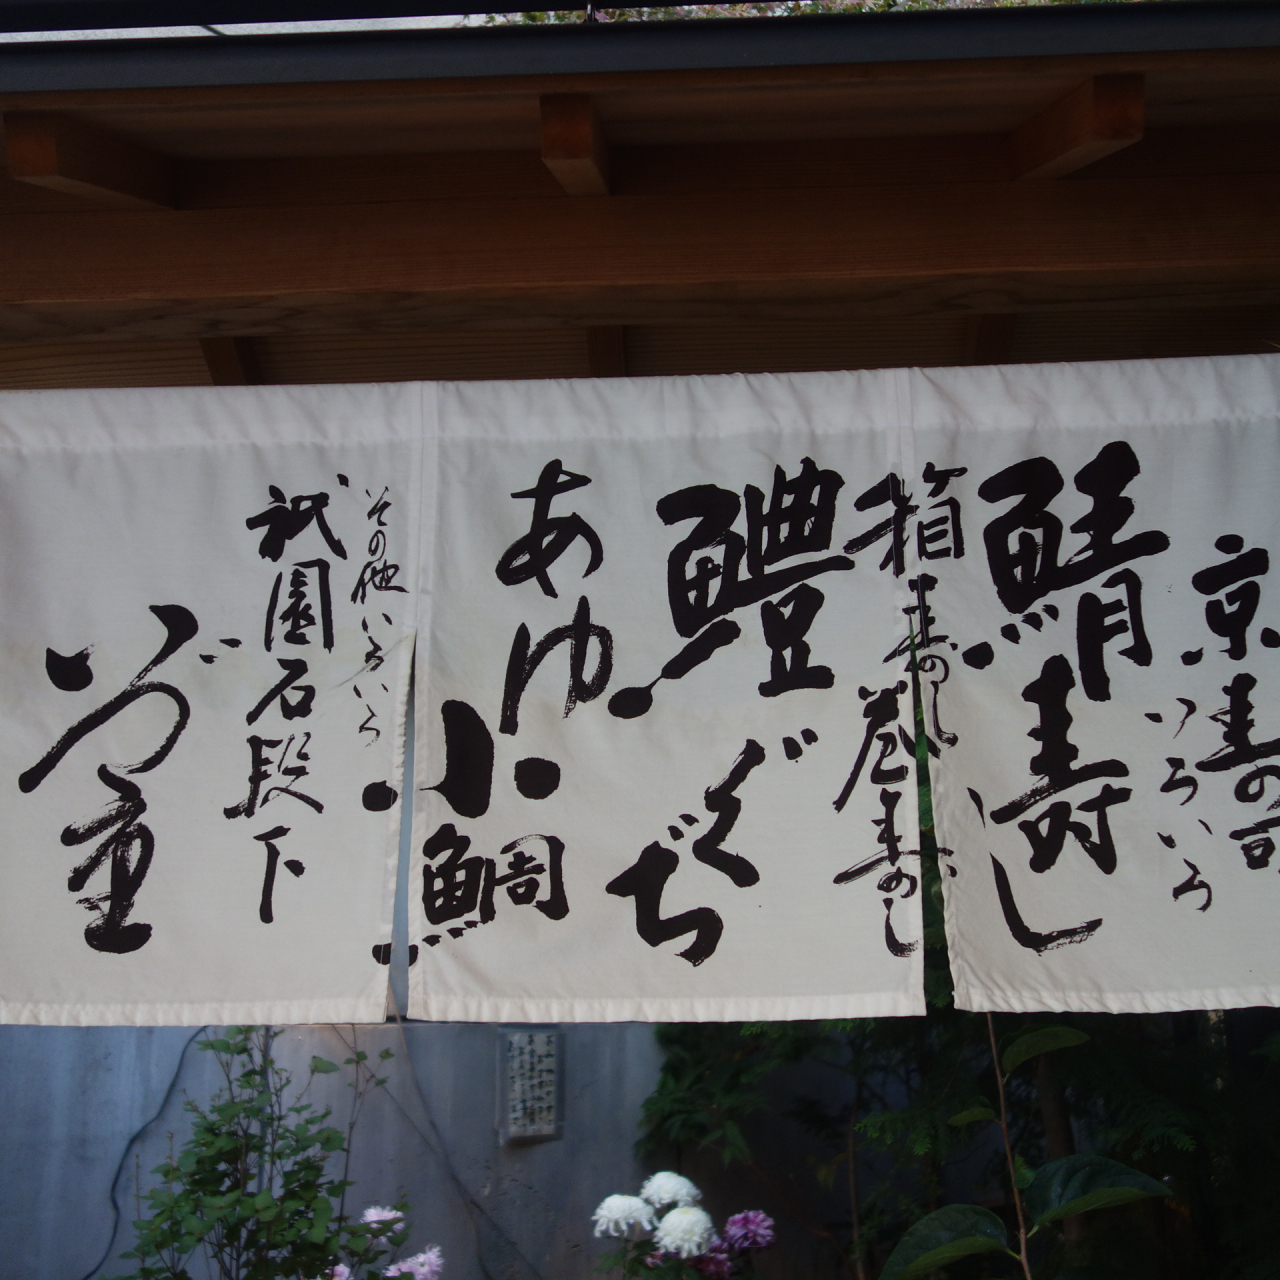 京寿の司
いろいろ
鯖寿し
箱寿のし
巻寿のし
鱧
ぐぢ
あゆ
小鯛
その他いろいろ
祇園石段下
いづ重